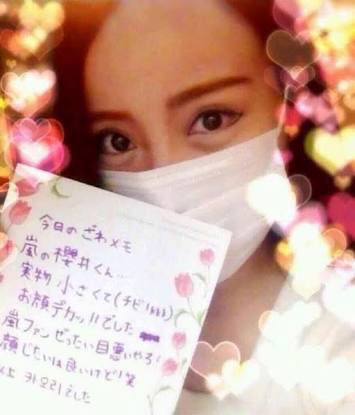 今日のざわメモ
嵐の櫻井くん…
実物 小さくて(チビ
お顔デカッ!!でした
嵐ファンぜったい目悪いやろ!
顔じたいは良いけど!笑
以上 カオリでした